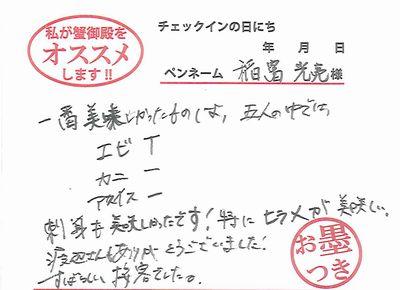 私が蟹御殿を
オススメ
します!!
チェックインの日にち
年 月 日
ペンネーム 稲富 光亮様
一番美味しかったものは、五人の中では、
エビ 丅
カニ 一
アイス 一
刺身も美味しかったです!特にヒラメが美味しい。
渡辺さんもありがとうございました!
すばらしい接客でした。
お墨
つき